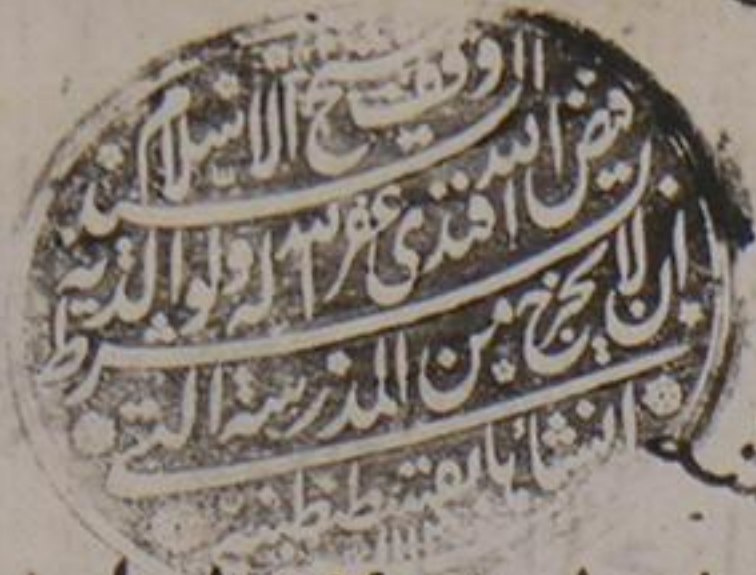 وقف شيخ الاسلام السيد
فيض الله افندى غفر الله له ولوالديه
بشرط ان لا يخرج من المدرسة التى
انشائها بقسطنطينية